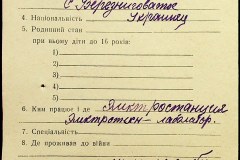 с Бередниговатое
4. Національність Украинец
5. Родинний стан
при ньому діти до 16 років:
1)
2)
3)
4)
5)
6. Ким працює і де Электростанция
Электротехн - лаборатор.
7. Спеціальність
8. Де проживав до війни